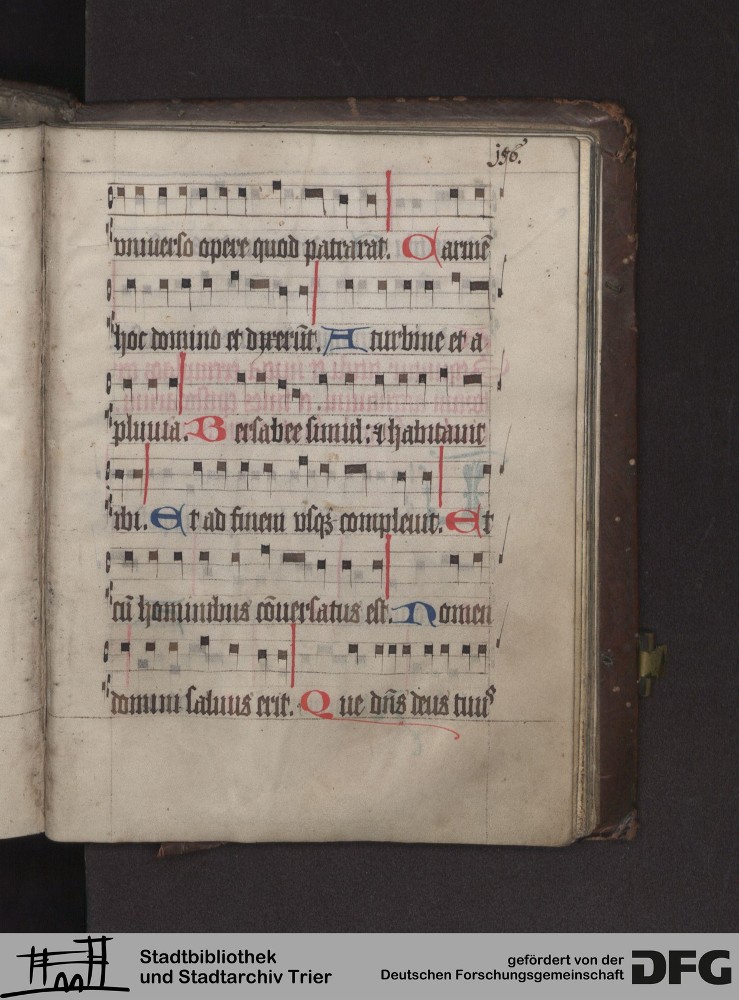 j56.
vniuerso opere quod patrarat. Carmē
hoc domino et dixerūt. A turbine et a
pluuia. Bersabee simul: et habitauit
ibi. Et ad finem vsqꝫ compleuit. Et
cū hominibus cōuersatus est. Nomen
domini saluus erit. Que dn̄s deus tuus
Stadtbibliothek
und Stadtarchiv Trier
gefördert von der
Deutschen Forschungsgemeinschaft
DFG